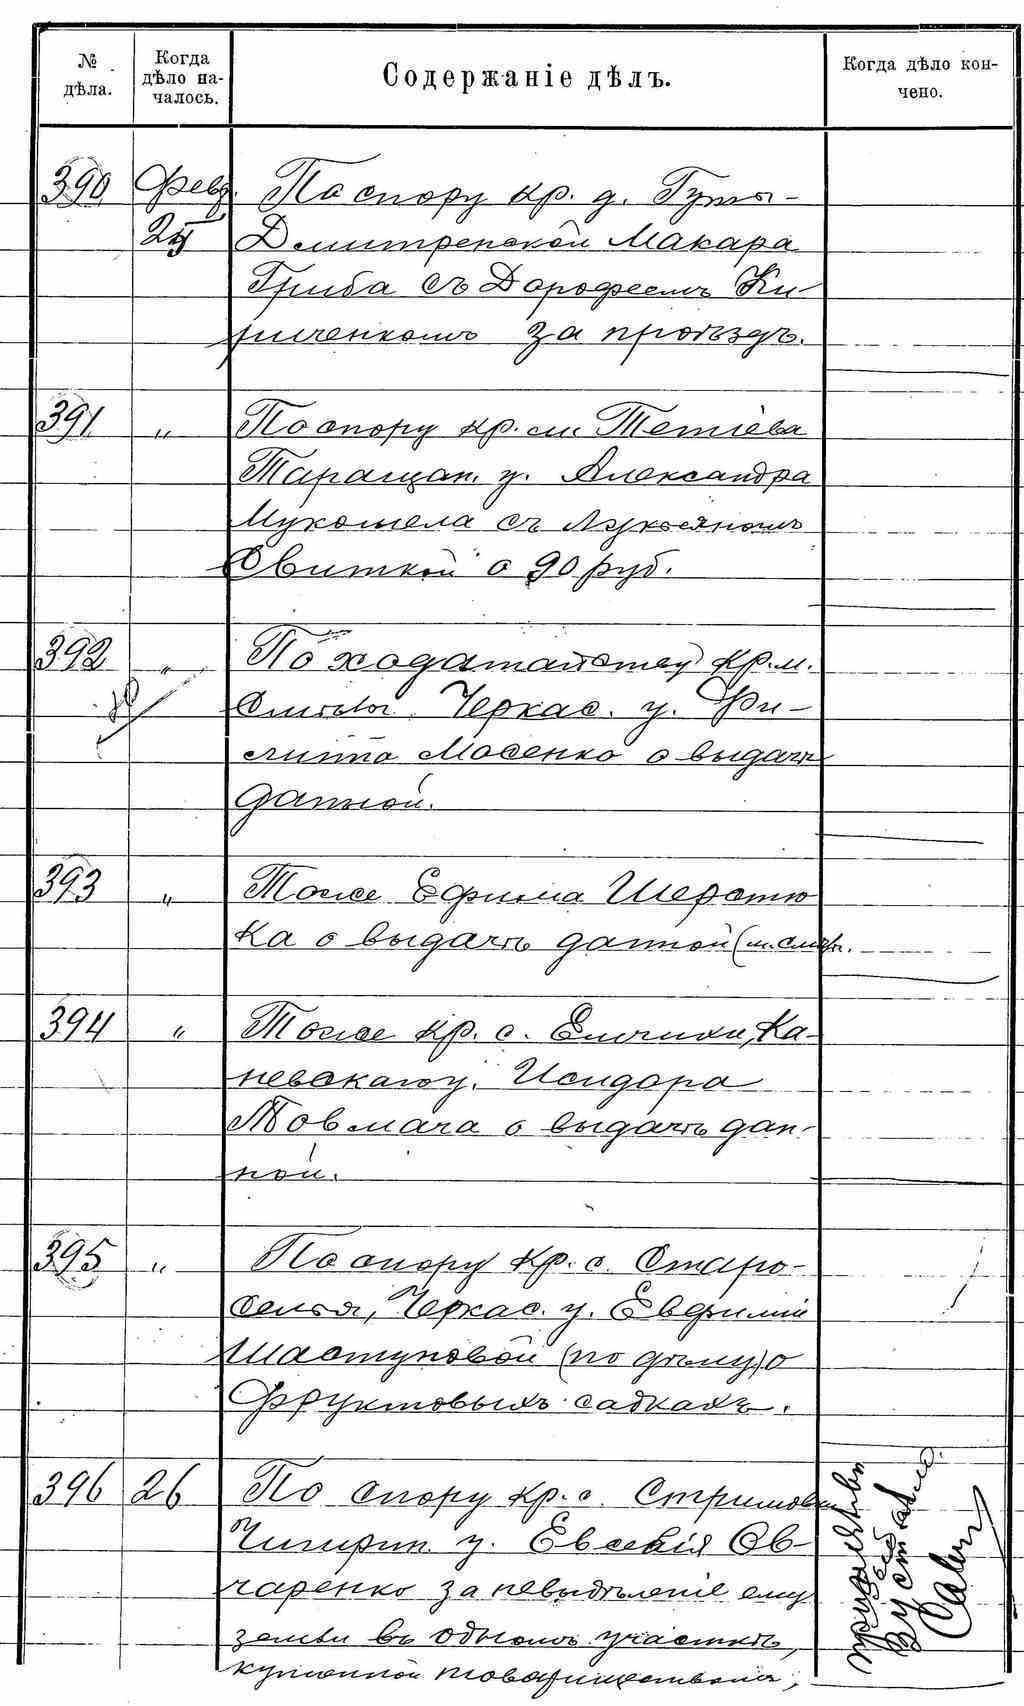 № дѣла.
Когда дѣло началось.
Содержаніе дѣлъ.
Когда дѣло кончено.
390 Февр. По спору кр. д. Гуты-
25 Дмитренской Макара
Гриба съ Дорофеемъ Ки-
риченкомъ за проѣздъ.
391 " По спору кр. м. Тетіева
Таращан. у. Александра
Мукомела съ Лукьяномъ
Свиткой о 90 руб.
392 " По ходатайству кр. м.
Смѣлы Черкас. у. Фи-
липпа Мосенко о выдачѣ
данной.
393 " Тоже Ефима Шерстю
ка о выдачѣ данной (м. Смѣлы.
394 " Тоже кр. с. Емчихи, Ка-
невскаго у. Исидора
Товмача о выдачѣ дан-
ной.
395 " По спору кр. с. Старо-
селья, Черкас. у. Евфиміи
Шастуновой (по дѣлу) о
фруктовыхъ садкахъ.
396 26 По спору кр. с. Стримовки
Чигирин. у. Евсевія Ов-
чаренко за невыдѣленіе ему
земли въ одномъ участкѣ,
купленной товариществомъ,